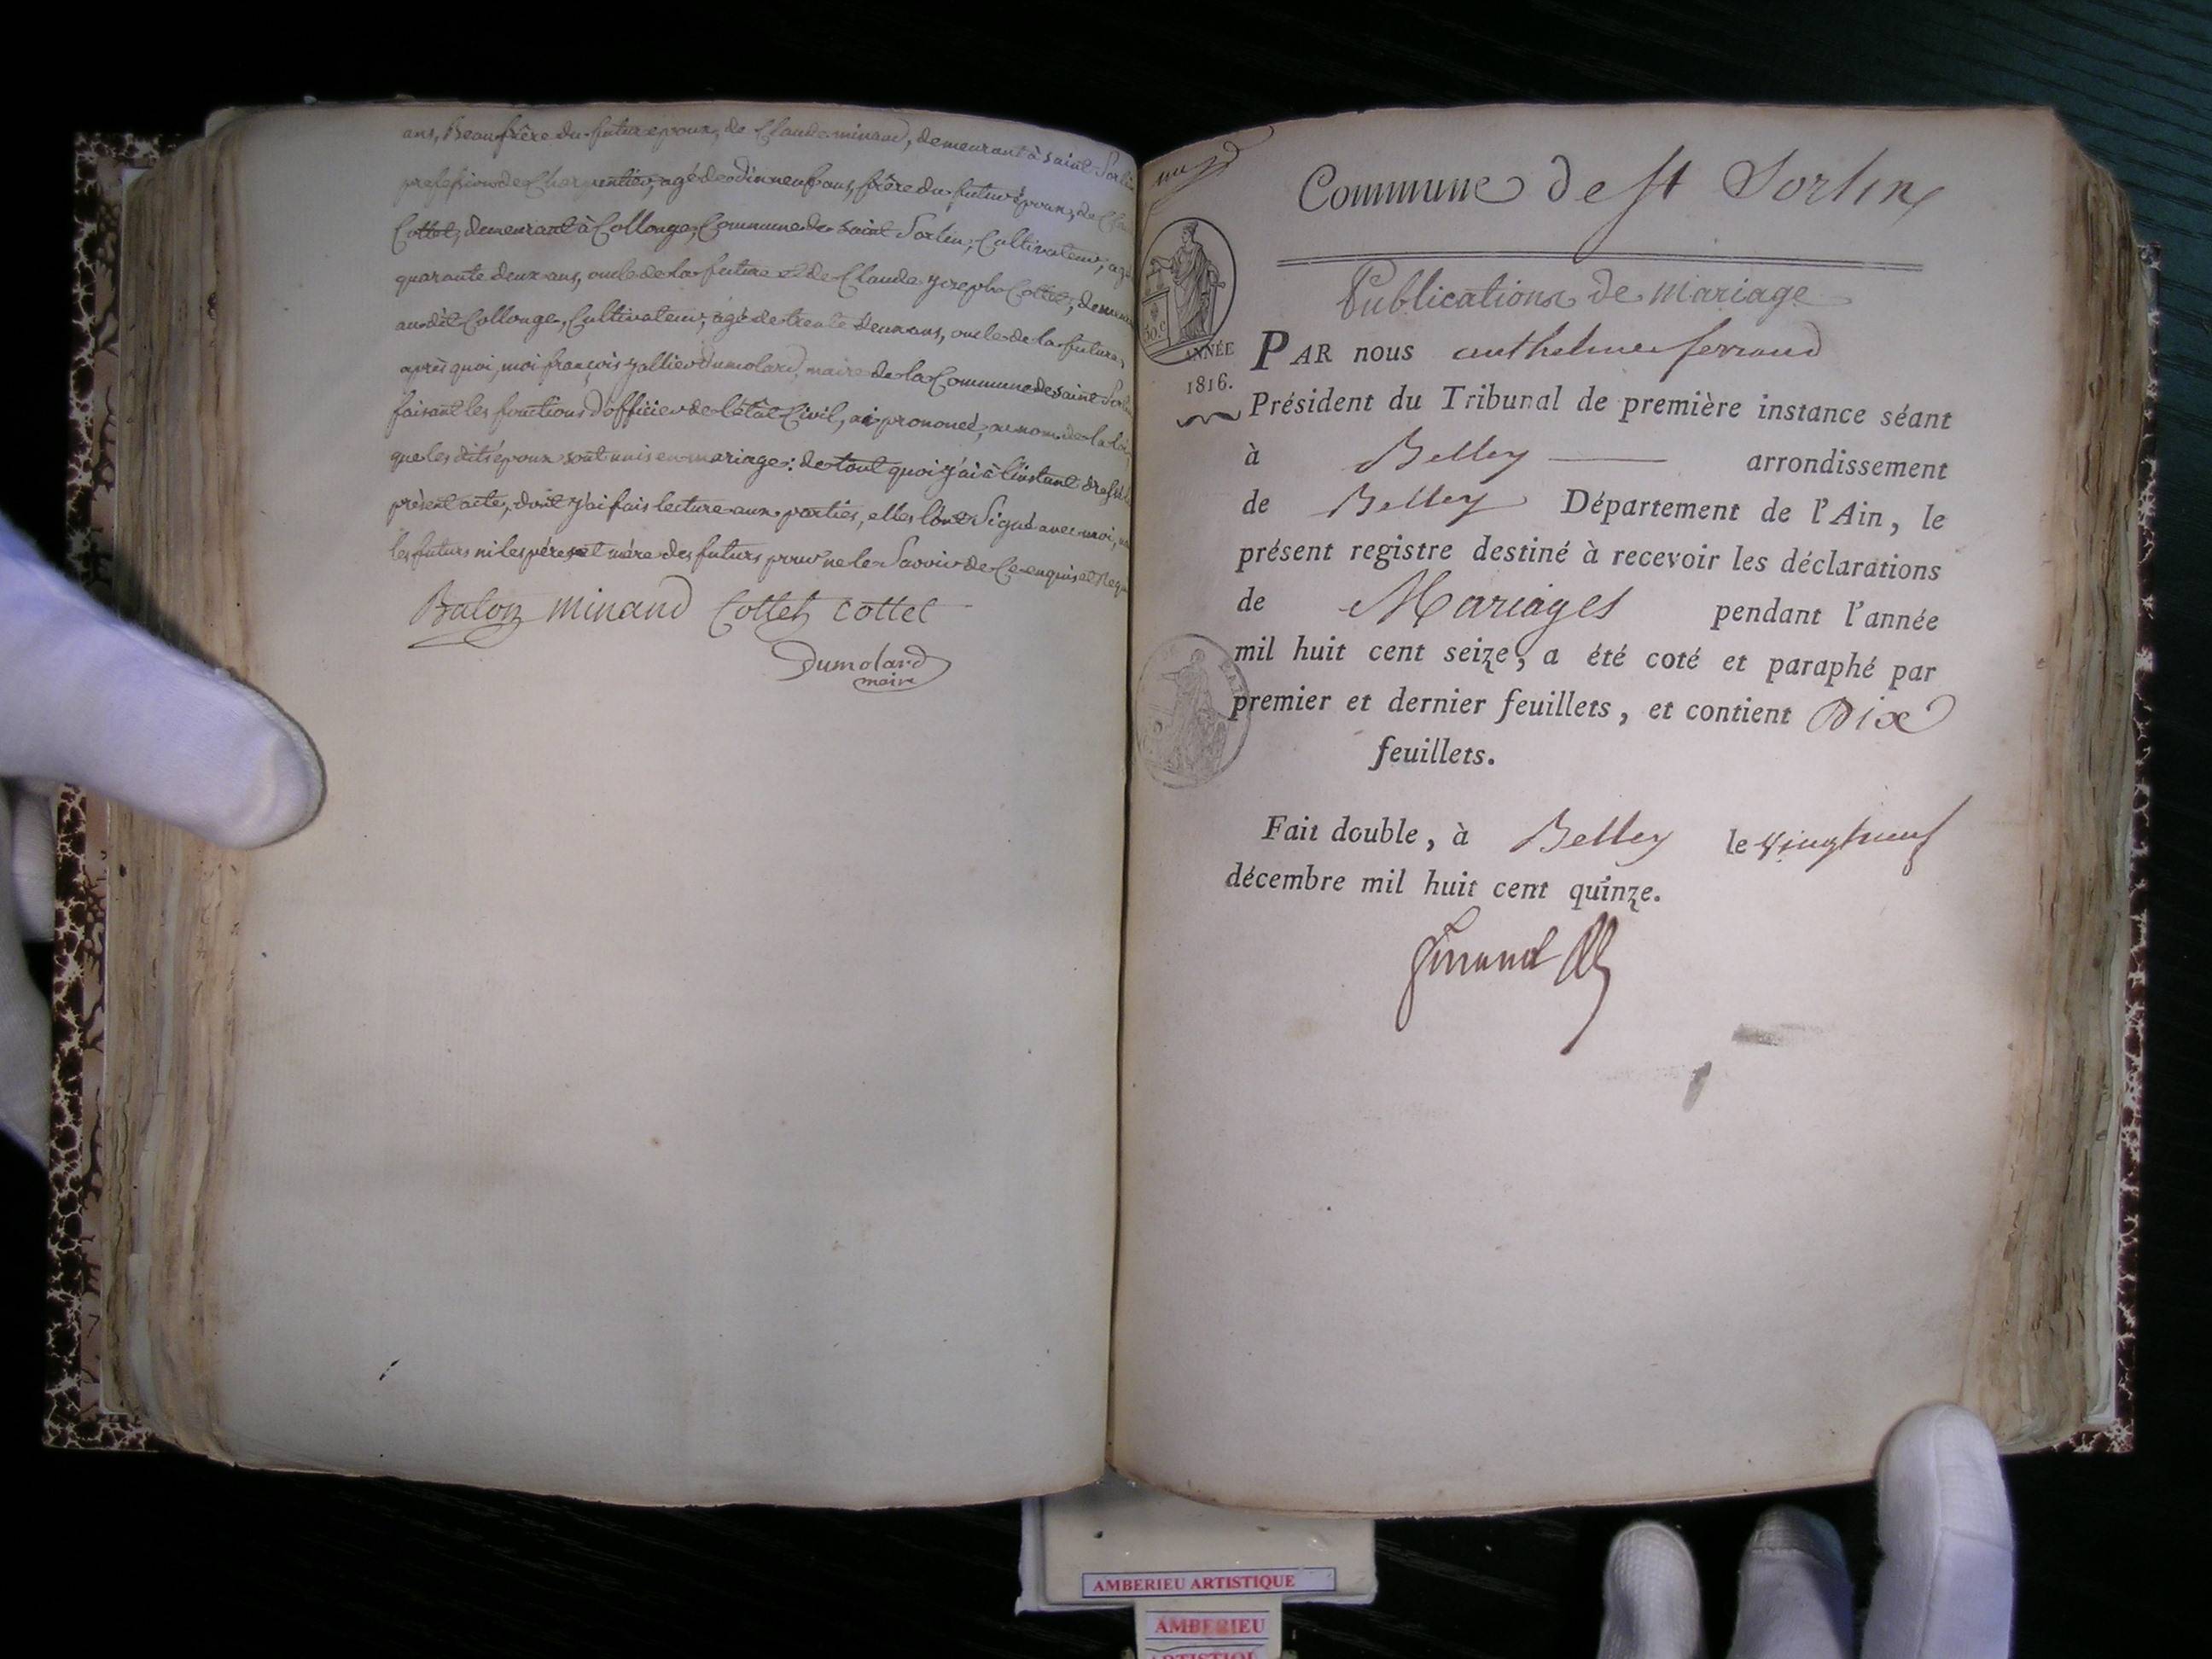 ans, Beaufrère du futur epoux, de Claude minand, demeurant à saint Sorlin
profession de Charpentier, agé de dixneuf ans, frère du futur époux, de Cla
Cottet, demeurant à Collonge, Commune de saint Sorlin, Cultivateur, agé
quarante deux ans, oncle de la future et de Claude yoseph Cottet, demeur
audit Collonge, Cultivateur, agé de trente deux ans, oncle de la future,
après quoi, moi françois yallier dumolard, maire de la Commune de saint Sorlin
faisant les fonctions d'officier de l'état Civil, ai prononcé, au nom de la loi
que les dits époux sont unis en mariage: de tout quoi j'ai à l'instant dressé
présent acte, dont j'ai fais lecture aux parties, elles l'ont Signé avec moi,
les futurs ni les pères et mére des futurs pour ne le Savoir de Ce enquis et
minand Cottet Cottet
Dumolard
maire
Commune de st Sorlin
Publications de mariage
ANNÉE
1816.
PAR nous anthelme ferrand
Président du Tribunal de première instance séant
à Belley arrondissement
de Belley Département de l'Ain, le
présent registre destiné à recevoir les déclarations
de Mariages pendant l'année
mil huit cent seize, a été coté et paraphé par
premier et dernier feuillets, et contient Dix
feuillets.
Fait double, à Belley le vingt neuf
décembre mil huit cent quinze.
ferrand
AMBERIEU ARTISTIQUE
AMBERIEU
ARTISTIQUE